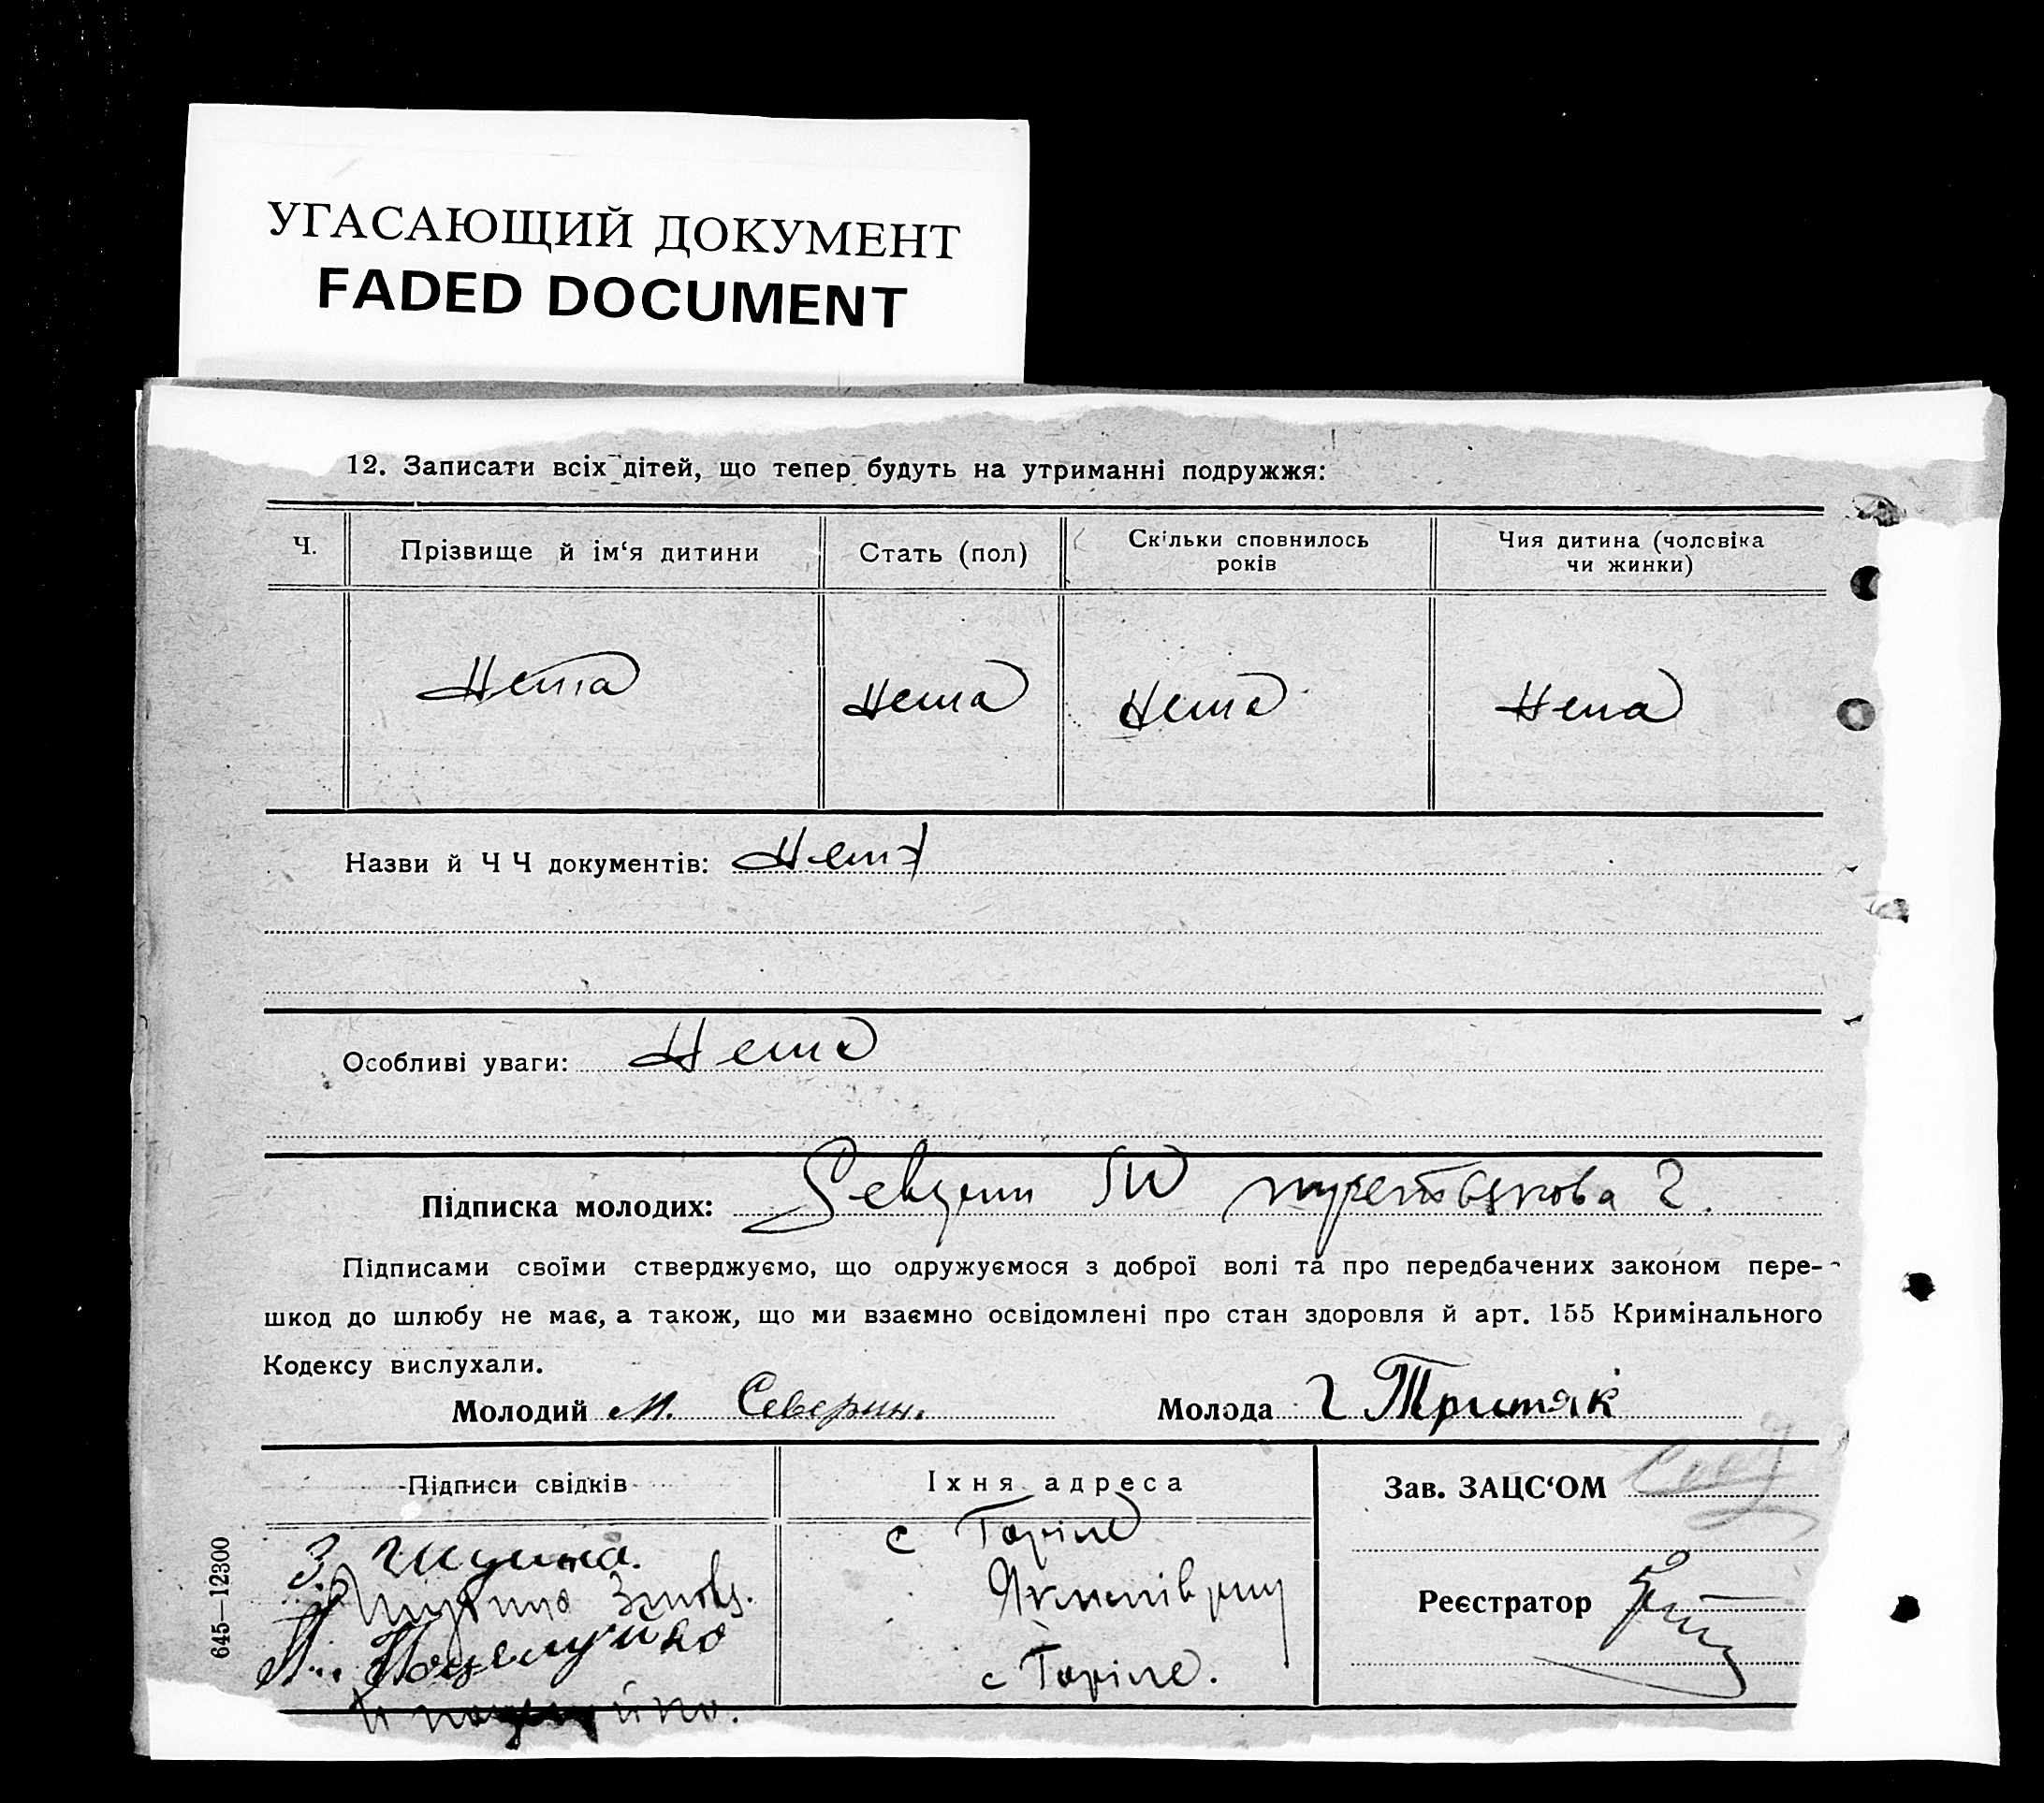 УГАСАЮЩИЙ ДОКУМЕНТ
FADED DOCUMENT
12. Записати всіх дітей, що тепер будуть на утриманні подружжя:
Ч.
Прізвище й ім‘я дитини
Стать (пол)
Скільки сповнилось років
Чия дитина (чоловіка чи жинки)
Нема
Нема
Нема
Нема
Назви й Ч Ч документів: Нема
Особливі уваги: Нема
Підписка молодих:
Підписами своїми стверджуємо, що одружуємося з доброї волі та про передбачених законом пере-
шкод до шлюбу не має, а також, що ми взаємно освідомлені про стан здоровля й арт. 155 Кримінального
Кодексу вислухали.
Молодий М. Северин. Молода Г Тритяк
Підписи свідків
Їхня адреса
Зав. ЗАЦС‘ОМ
Реєстратор
с
с
645—12300